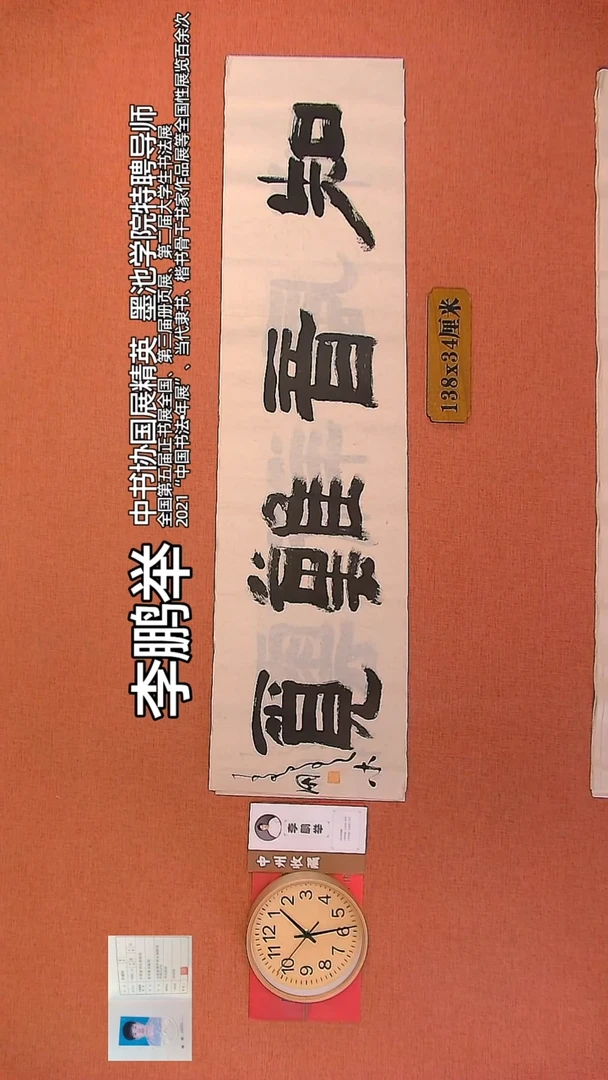 李鹏举
中书协国展精英 墨池学院特聘导师
全国第五届正书展全国、第三届册页展、第二届大学生书法展
2021“中国书法·年展”、当代隶书、楷书骨干书家作品展等全国性展览百余次
知音難覓
138x34厘米
李鹏举
中州收藏
12
1
2
3
4
5
6
7
8
9
10
11